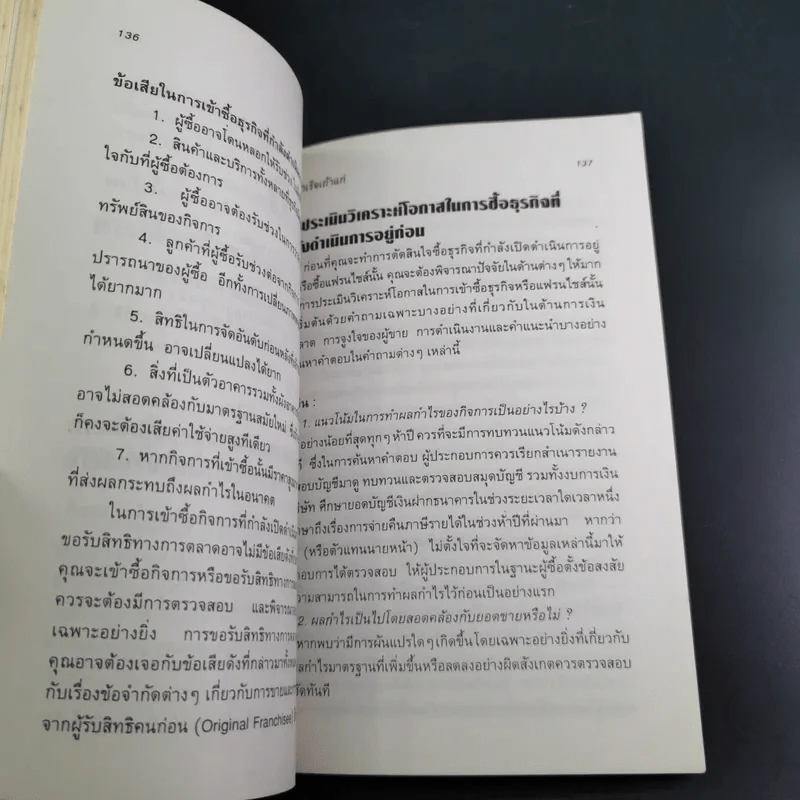 136
ข้อเสียในการเข้าซื้อธุรกิจที่กำลังดำเนิน
1. ผู้ซื้ออาจโดนหลอกให้รับช่วง
2. สินค้าและบริการทั้งหลายที่ธุรกิจ
ใจกับที่ผู้ซื้อต้องการ
3. ผู้ซื้ออาจต้องรับช่วงในการ
ทรัพย์สินของกิจการ
4. ลูกค้าที่ผู้ซื้อรับช่วงต่อจากกิจการ
ปรารถนาของผู้ซื้อ อีกทั้งการเปลี่ยนภาพ
ได้ยากมาก
5. สิทธิในการจัดอันดับก่อนหลังที่
กำหนดขึ้น อาจเปลี่ยนแปลงได้ยาก
6. สิ่งที่เป็นตัวอาคารรวมทั้งผังอาคาร
อาจไม่สอดคล้องกับมาตรฐานสมัยใหม่
ก็คงจะต้องเสียค่าใช้จ่ายสูงทีเดียว
7. หากกิจการที่เข้าซื้อนั้นมีราคาสูง
ที่ส่งผลกระทบถึงผลกำไรในอนาคต
ในการเข้าซื้อกิจการที่กำลังเปิดดำเนิน
ขอรับสิทธิทางการตลาดอาจไม่มีข้อเสียดัง
คุณจะเข้าซื้อกิจการหรือขอรับสิทธิทางการ
ควรจะต้องมีการตรวจสอบ และพิจารณา
เฉพาะอย่างยิ่ง การขอรับสิทธิทางการ
คุณอาจต้องเจอกับข้อเสียดังที่กล่าวมาทั้งหมด
กับเรื่องข้อจำกัดต่างๆ เกี่ยวกับการขายและ
จากผู้รับสิทธิคนก่อน (Original Franchisee)
137
ประเมินวิเคราะห์โอกาสในการซื้อธุรกิจที่
ดำเนินการอยู่ก่อน
ก่อนที่คุณจะทำการตัดสินใจซื้อธุรกิจที่กำลังเปิดดำเนินการอยู่
หรือซื้อแฟรนไชส์นั้น คุณจะต้องพิจารณาปัจจัยในด้านต่างๆ ให้มาก
การประเมินวิเคราะห์โอกาสในการเข้าซื้อธุรกิจหรือแฟรนไชส์นั้น
เริ่มต้นด้วยคำถามเฉพาะบางอย่างที่เกี่ยวกับในด้านการเงิน
ลาด การจูงใจของผู้ขาย การดำเนินงานและคำแนะนำบางอย่าง
หาคำตอบในคำถามต่างๆ เหล่านี้
น :
1. แนวโน้มในการทำผลกำไรของกิจการเป็นอย่างไรบ้าง ?
อย่างน้อยที่สุดทุกๆ ห้าปี ควรที่จะมีการทบทวนแนวโน้มดังกล่าว
ซึ่งในการค้นหาคำตอบ ผู้ประกอบการควรเรียกสำเนารายงาน
สอบบัญชีมาดู ทบทวนและตรวจสอบสมุดบัญชี รวมทั้งงบการเงิน
ษัท ศึกษายอดบัญชีเงินฝากธนาคารในช่วงระยะเวลาใดเวลาหนึ่ง
ษาถึงเรื่องการจ่ายคืนภาษีรายได้ในช่วงห้าปีที่ผ่านมา หากว่า
(หรือตัวแทนนายหน้า) ไม่ตั้งใจที่จะจัดหาข้อมูลเหล่านี้มาให้
อบการได้ตรวจสอบ ให้ผู้ประกอบการในฐานะผู้ซื้อตั้งข้อสงสัย
วามสามารถในการทำผลกำไรไว้ก่อนเป็นอย่างแรก
2. ผลกำไรเป็นไปโดยสอดคล้องกับยอดขายหรือไม่ ?
หากพบว่ามีการผันแปรใดๆ เกิดขึ้น โดยเฉพาะอย่างยิ่งที่เกี่ยวกับ
ผลกำไรมาตรฐานที่เพิ่มขึ้นหรือลดลงอย่างผิดสังเกตควรตรวจสอบ
ทันที